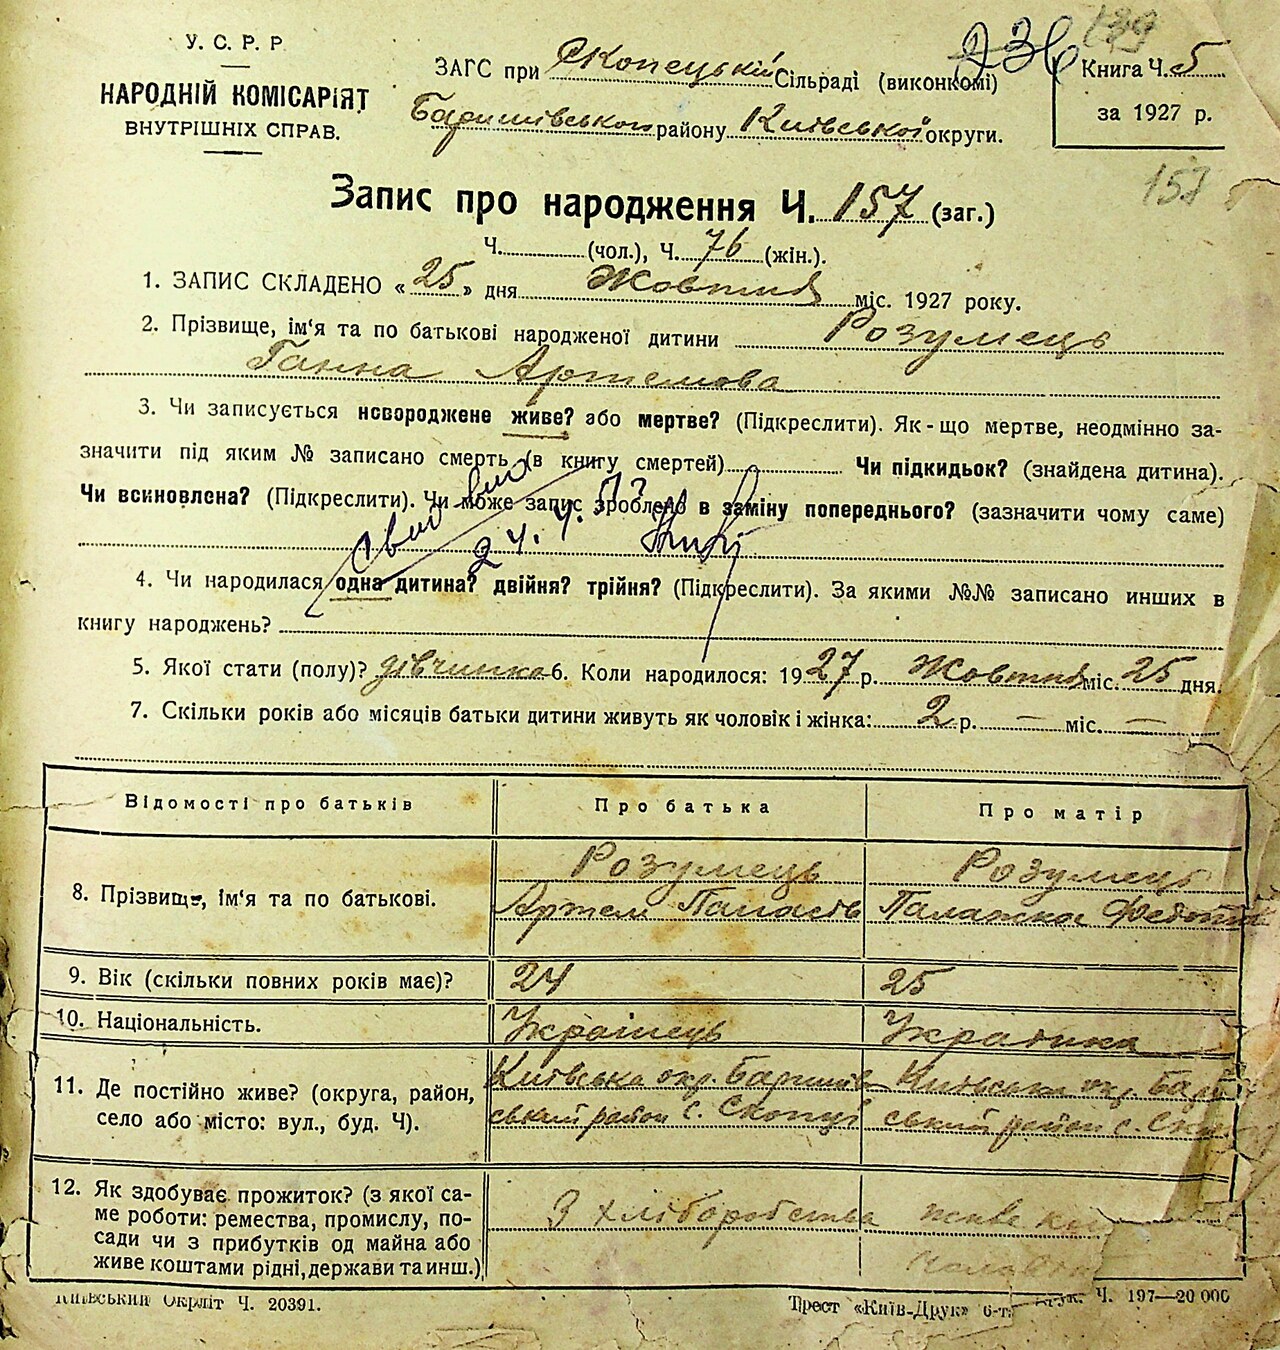 У. С. Р. Р
НАРОДНІЙ КОМІСАРІЯТ
ВНУТРІШНІХ СПРАВ.
ЗАГС при Скопецькій Сільраді (виконкомі)
Баришівського району Київської округи.
236
139
Книга Ч. 5
за 1927 р.
157
Запис про народження Ч. 157 (заг.)
Ч. (чол.), Ч. 76 (жін.).
1. ЗАПИС СКЛАДЕНО « 25 » дня Жовтня міс. 1927 року.
2. Прізвище, ім'я та по батькові народженої дитини Розумець
Ганна Артемова
3. Чи записується новороджене живе? або мертве? (Підкреслити). Як-що мертве, неодмінно за-
значити під яким № записано смерть (в книгу смертей) Чи підкидьок? (знайдена дитина).
Чи всиновлена? (Підкреслити). Чи може запис зроблено в заміну попереднього? (зазначити чому саме)
4. Чи народилася одна дитина? двійня? трійня? (Підкреслити). За якими №№ записано инших в
книгу народжень?
5. Якої стати (полу)? дівчинка 6. Коли народилося: 1927 р. Жовтня міс. 25 дня.
7. Скільки років або місяців батьки дитини живуть як чоловік і жінка: 2 р. — міс. —
Відомості про батьків Про батька Про матір
8. Прізвище, ім'я та по батькові. Розумець Розумець
Артем Панасів Палажка
9. Вік (скільки повних років має)? 24 25
10. Національність. Українець Українка
11. Де постійно живе? (округа, район,
село або місто: вул., буд. Ч).
Київська окр. Баришів Київська окр. Бар
ський район с. Скопці ський район с.
12. Як здобуває прожиток? (з якої са-
ме роботи: ремества, промислу, по-
сади чи з прибутків од майна або
живе коштами рідні, держави та инш.)
З хліборобства живе
Київський Окрліт Ч. 20391.
Трест «Київ-Друк» 6-та Ч. 197—20 000